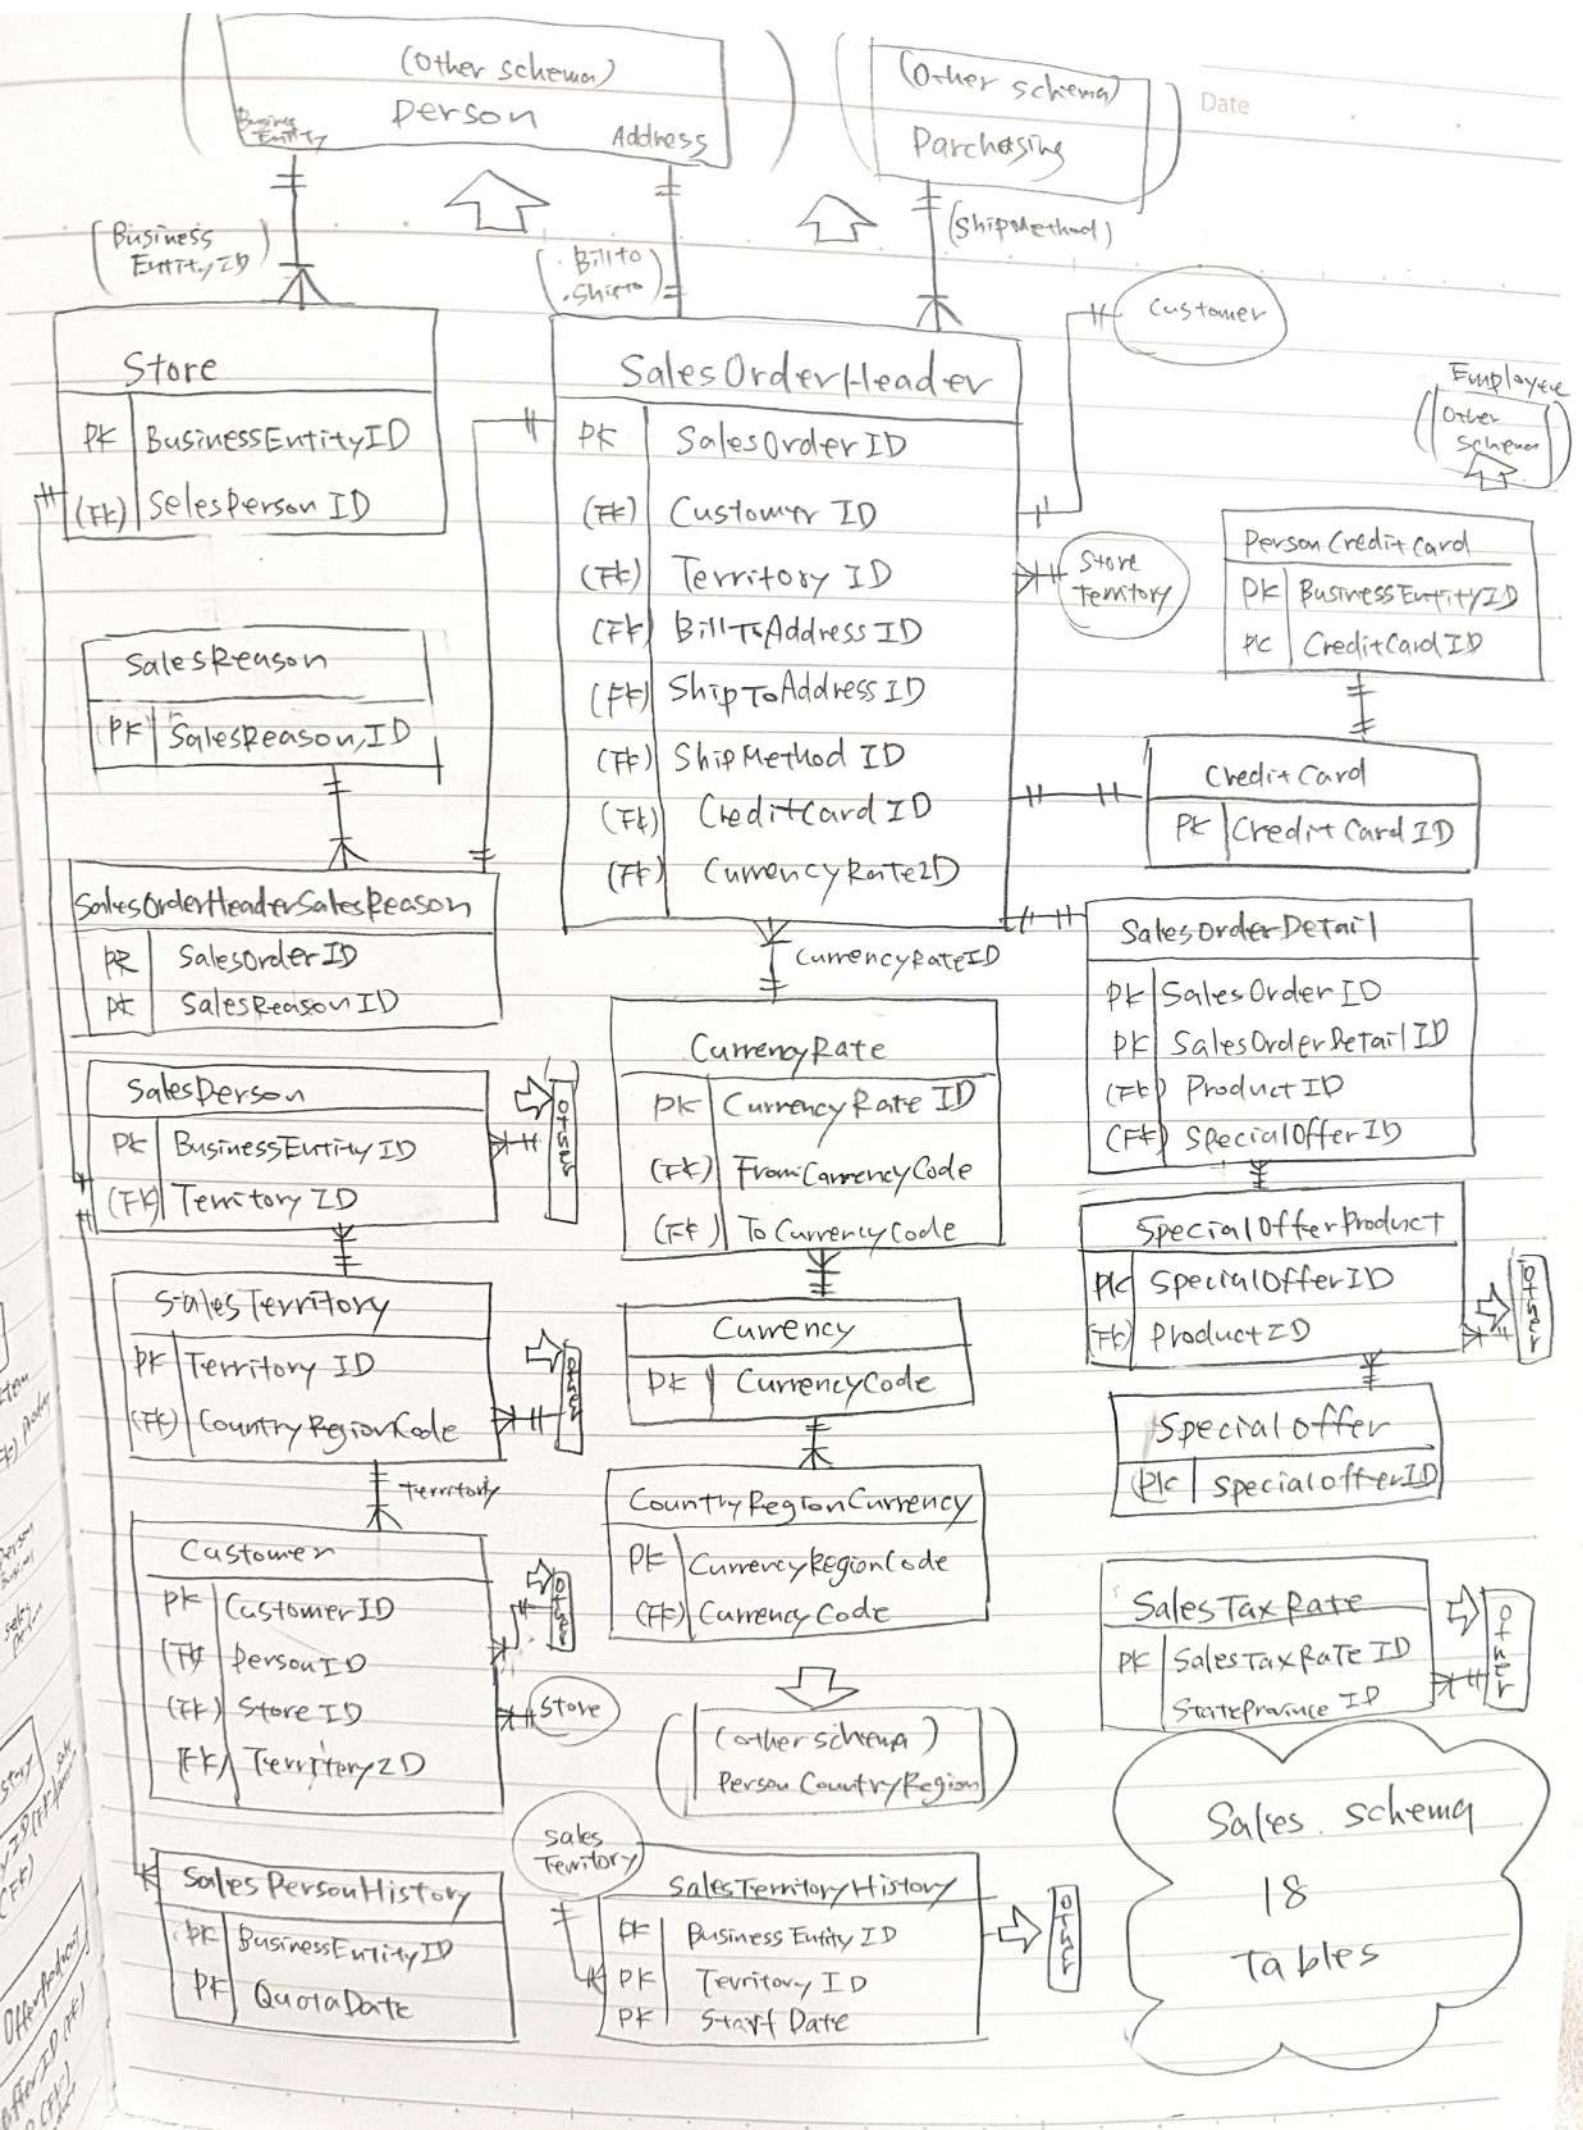 (Other schema)
Person
Business
Entity
Address
(Other schema)
Parchasing
Date
(Business
EntityID)
(. Billto
. Shipto)
(ShipMethod)
Customer
Store
PK BusinessEntityID
(FK) SelesPerson ID
SalesOrderHeader
PK SalesOrder ID
(FK) Customer ID
(FK) Territory ID
(FK) BillToAddress ID
(FK) ShipToAddress ID
(FK) ShipMethod ID
(FK) CreditCard ID
(FK) CurrencyRateID
Employee
(Other
schema)
Store
Territory
PersonCreditCard
PK BusinessEntityID
PK CreditCard ID
SalesReason
PK SalesReason,ID
CreditCard
PK CreditCard ID
SalesOrderHeaderSalesReason
PK SalesOrder ID
PK SalesReason ID
CurrencyRateID
SalesOrderDetail
PK SalesOrder ID
PK SalesOrderDetail ID
(FK) Product ID
(FK) SpecialOfferID
CurrencyRate
PK CurrencyRate ID
(FK) FromCurrencyCode
(FK) ToCurrencyCode
SalesPerson
PK BusinessEntity ID
(FK) Territory ID
other
SpecialOfferProduct
PK SpecialOfferID
(FK) Product ID
other
SalesTerritory
PK Territory ID
(FK) CountryRegionCode
other
Currency
PK CurrencyCode
Special offer
PK SpecialofferID
Territory
CountryRegionCurrency
PK CurrencyRegionCode
(FK) CurrencyCode
Customer
PK CustomerID
(FK) PersonID
(FK) Store ID
(FK) TerritoryID
other
Store
SalesTaxRate
PK SalesTaxRate ID
StateProvince ID
other
(other schema)
Person CountryRegion
Sales schema
18
Tables
Sales
Territory
SalesPersonHistory
PK BusinessEntityID
PK QuotaDate
SalesTerritoryHistory
PK Business Entity ID
PK Territory ID
PK Start Date
other